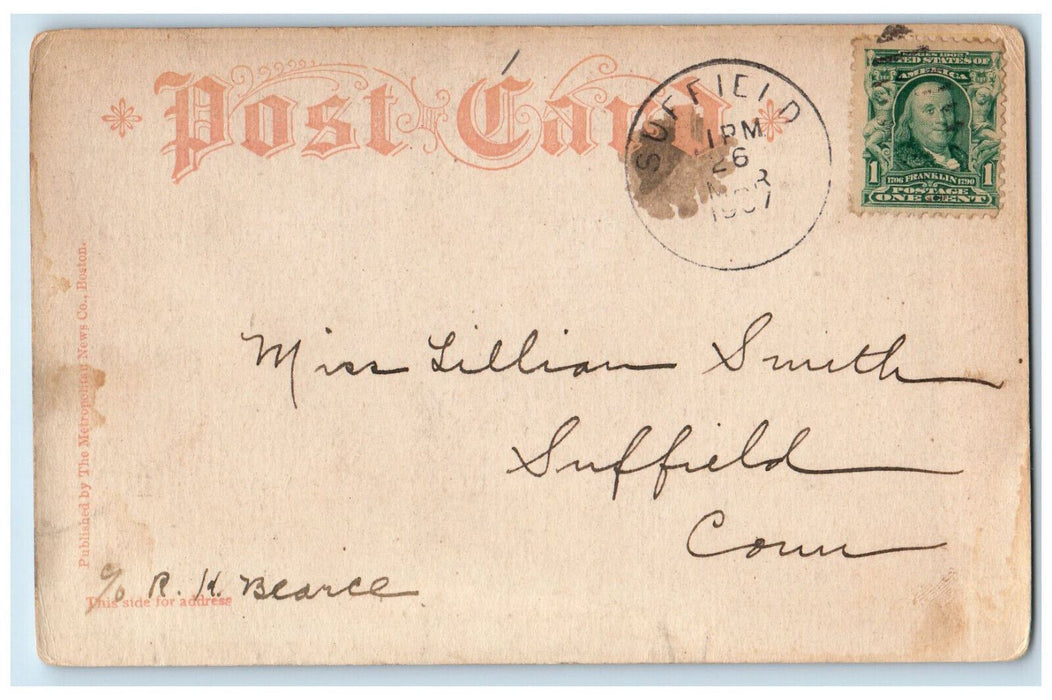 Post Card
SUFFIELD
1 PM
26
1907
SERIES 1902
UNITED STATES OF
AMERICA
1706 FRANKLIN 1790
1 POSTAGE 1
ONE CENT
Published by The Metropolitan News Co., Boston.
Miss Lillian Smith
Suffield
Conn
c/o R. H. Bearce
This side for address